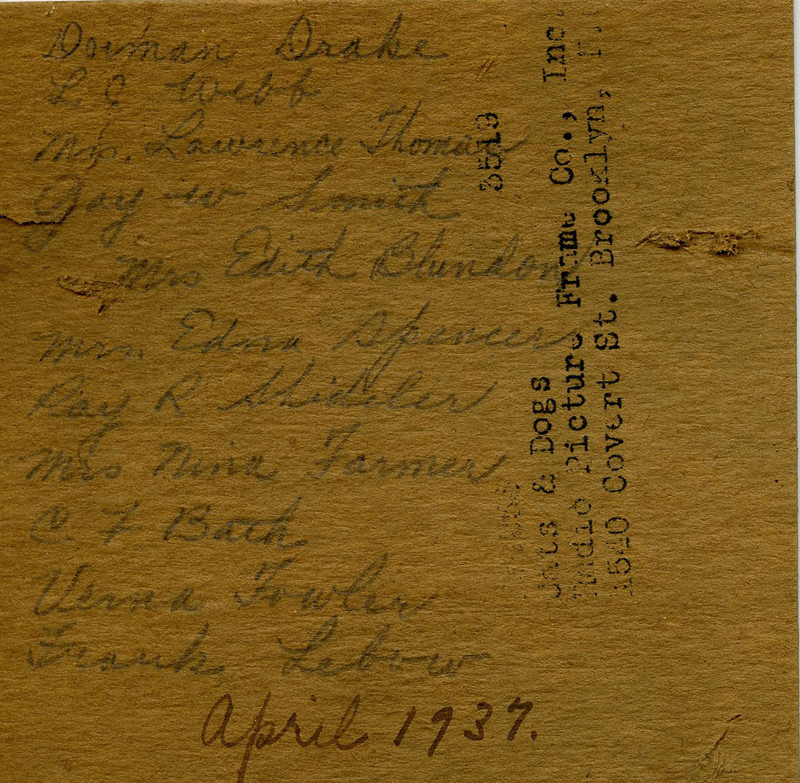 Dorman Drake
L C Webb
Mrs. Lawrence Thomas
Gay W Smith
Mrs Edith Blundon
Mrs. Edna Spencer
Ray R Shideler
Mrs Nina Farmer
C. F Bath
Verna Fowler
Frank Lebow
April 1937.
3519
Cats & Dogs
Radio Picture Frame Co., Inc.
1540 Covert St. Brooklyn, N.